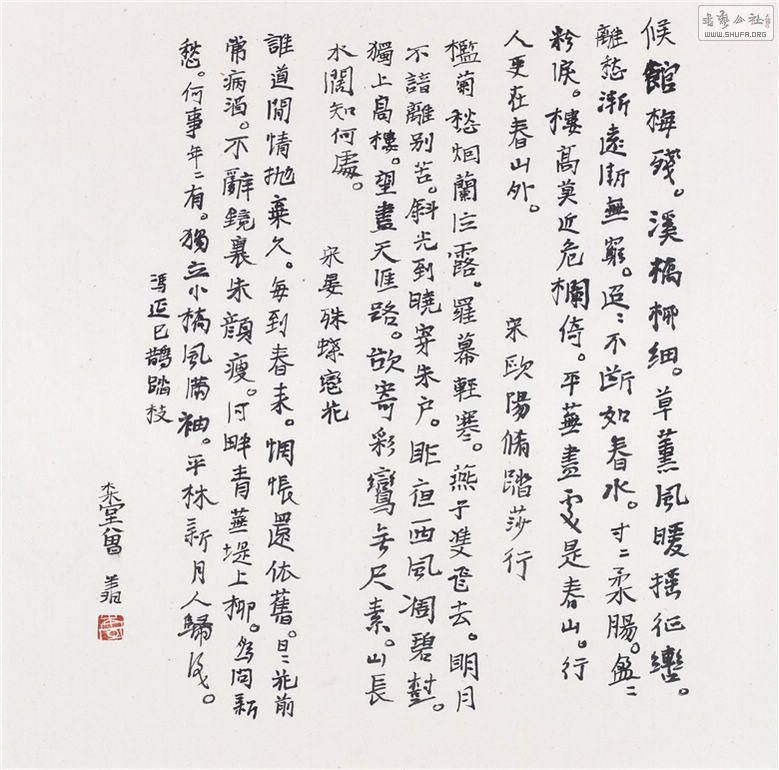 候館梅殘。溪橋柳細。草薰風暖搖征轡。
離愁漸遠漸無窮。迢〻不斷如春水。寸〻柔腸。盈〻
粉淚。樓高莫近危欄倚。平蕪盡處是春山。行
人更在春山外。 宋歐陽脩踏莎行
檻菊愁烟蘭泣露。羅幕輕寒。燕子雙飛去。明月
不諳離別苦。斜光到曉穿朱户。昨夜西風凋碧樹。
獨上高樓。望盡天涯路。欲寄彩鸞無尺素。山長
水闊知何處。 宋晏殊蝶戀花
誰道閒情拋棄久。每到春来。惆悵還依舊。日〻花前
常病酒。不辭鏡裏朱顏瘦。河畔青蕪堤上柳。為問新
愁。何事年〻有。獨立小橋風滿袖。平林新月人歸後。
馮延巳鵲踏枝
堂曾
書藝公社
WWW.SHUFA.ORG